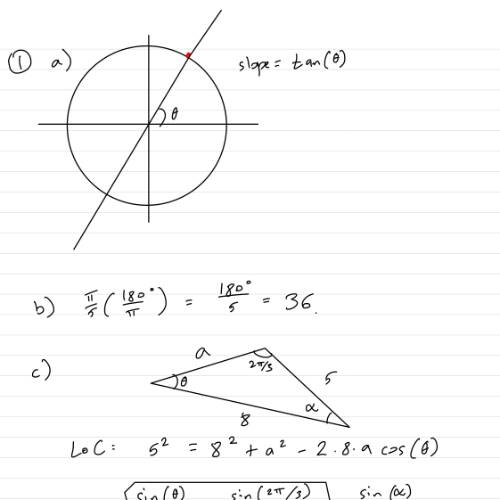 ① a) slope = tan(θ)
θ
b) π/5 (180°/π) = 180°/5 = 36.
c) a
2π/3
θ
5
α
8
LoC: 5² = 8² + a² - 2·8·a cos(θ)
sin(θ) sin(2π/3) sin(α)